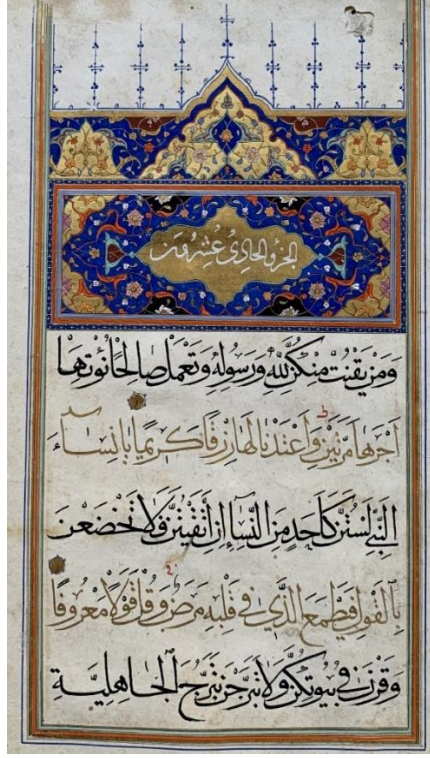 الجزو الحادي عشر من
وَمَنْ يَقْنُتْ مِنْكُنَّ لِلّٰهِ وَرَسُولِهِ وَتَعْمَلْ صَالِحًا نُؤْتِهَا
اَجْرَهَا مَرَّتَيْنِ وَاَعْتَدْنَا لَهَا رِزْقًا كَرِيمًا يَا نِسَاءَ
النَّبِيِّ لَسْتُنَّ كَاَحَدٍ مِنَ النِّسَاءِ اِنِ اتَّقَيْتُنَّ فَلَا تَخْضَعْنَ
بِالْقَوْلِ فَيَطْمَعَ الَّذِي فِي قَلْبِهِ مَرَضٌ وَقُلْنَ قَوْلًا مَعْرُوفًا
وَقَرْنَ فِي بُيُوتِكُنَّ وَلَا تَبَرَّجْنَ تَبَرُّجَ الْجَاهِلِيَّةِ